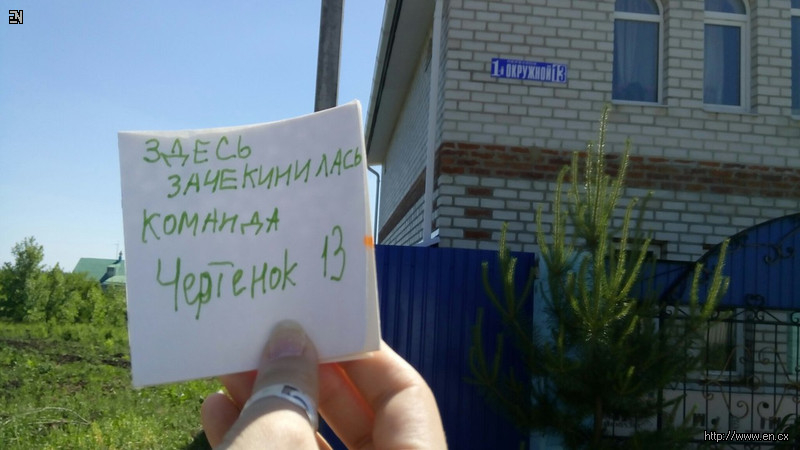 EN
1й ОКРУЖНОЙ 13
ЗДЕСЬ
ЗАЧЕКИНИЛАСЬ
КОМАНДА
Чертенок 13
http://www.en.cx